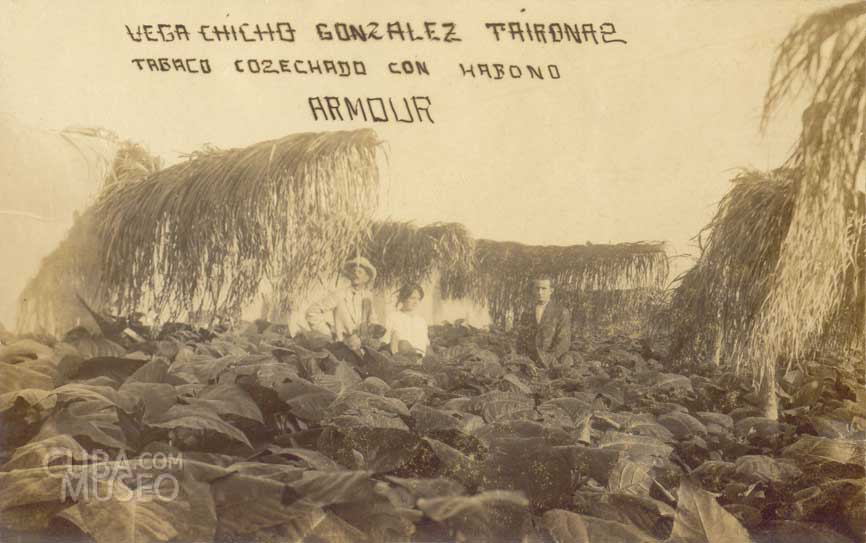 VEGA CHICHO GONZALEZ TAIRONAS
TABACO COZECHADO CON HABONO
ARMOUR
CUBA.COM
MUSEO